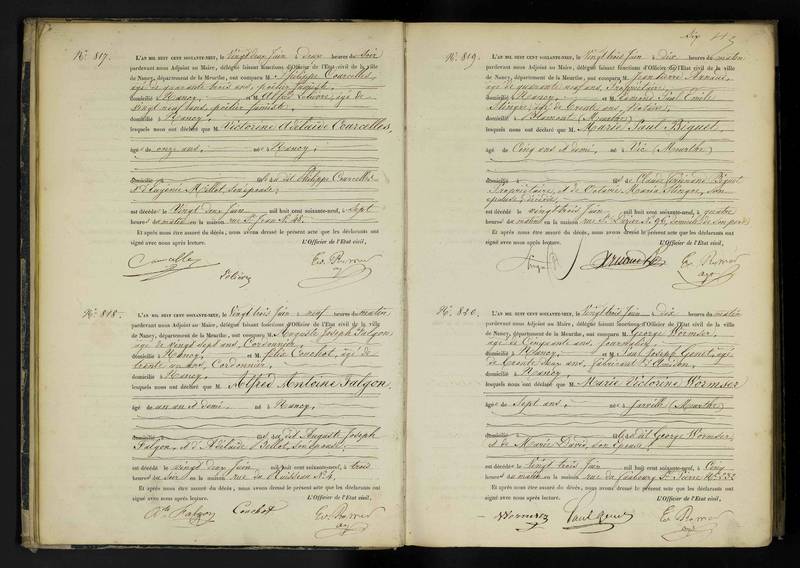 N.° 817.
L'AN MIL HUIT CENT SOIXANTE-NEUF, le vingt deux Juin à deux heures du soir
pardevant nous Adjoint au Maire, délégué faisant fonctions d'Officier de l'Etat civil de la ville
de Nancy, département de la Meurthe, ont comparu M. Philippe Courcelles,
âgé de quarante trois ans, poëlier fumiste,
domicilié à Nancy, et M. Alfred Lelièvre, âgé de
vingt neuf ans, poëlier fumiste,
domicilié à Nancy,
lesquels nous ont déclaré que M. Victorine Adelaïde Courcelles,
âgé de onze ans, né à Nancy,
domicilié à fils dudit Philippe Courcelles
et d'Eugénie Millot son épouse,
est décédé le vingt deux Juin mil huit cent soixante-neuf, à sept
heures du matin en la maison rue St Jean N.° 48.
Et après nous être assuré du décès, nous avons dressé le présent acte que les déclarants ont
signé avec nous après lecture. L'Officier de l'Etat civil,
Courcelles Lelièvre
N.° 818.
L'AN MIL HUIT CENT SOIXANTE-NEUF, le vingt trois Juin à neuf heures du matin
pardevant nous Adjoint au Maire, délégué faisant fonctions d'Officier de l'Etat civil de la ville
de Nancy, département de la Meurthe, ont comparu M. Auguste Joseph Falgon,
âgé de vingt sept ans, Cordonnier,
domicilié à Nancy, et M. Félix Conchot, âgé de
trente un ans, Cordonnier,
domicilié à Nancy,
lesquels nous ont déclaré que M. Alfred Antoine Falgon,
âgé de un an et demi, né à Nancy,
domicilié à fils dudit Auguste Joseph
Falgon, et d'Adelaïde Bellot, son épouse,
est décédé le vingt deux Juin mil huit cent soixante-neuf, à trois
heures du soir en la maison rue du Ruisseau N.° 4.
Et après nous être assuré du décès, nous avons dressé le présent acte que les déclarants ont
signé avec nous après lecture. L'Officier de l'Etat civil,
Falgon Conchot
N.° 819.
L'AN MIL HUIT CENT SOIXANTE-NEUF, le vingt trois Juin à dix heures du matin
pardevant nous Adjoint au Maire, délégué faisant fonctions d'Officier de l'Etat civil de la ville
de Nancy, département de la Meurthe, ont comparu M. Jean Pierre
âgé de quarante neuf ans, Propriétaire,
domicilié à Nancy, et M. Edmond Paul Emile
âgé de trente ans, Notaire,
domicilié à Blamont (Meurthe)
lesquels nous ont déclaré que M. Marie Paul Biquet,
âgé de Cinq ans et demi, né à Vic (Meurthe)
domicilié à fils de Claude Biquet
Propriétaire, et de Octavie Maria son
épouse
est décédé le vingt trois Juin mil huit cent soixante-neuf, à quatre
heures du matin en la maison rue N.° 96, domicile de son père
Et après nous être assuré du décès, nous avons dressé le présent acte que les déclarants ont
signé avec nous après lecture. L'Officier de l'Etat civil,
N.° 820.
L'AN MIL HUIT CENT SOIXANTE-NEUF, le vingt trois Juin à dix heures du matin
pardevant nous Adjoint au Maire, délégué faisant fonctions d'Officier de l'Etat civil de la ville
de Nancy, département de la Meurthe, ont comparu M. George
Wormser, âgé de Cinquante ans, Journalier,
domicilié à Nancy, et M. Paul Joseph Genet, âgé
de trente deux ans, fabricant d'Amidon,
domicilié à Nancy,
lesquels nous ont déclaré que M. Marie Victorine Wormser
âgé de Sept ans, né à Jarville (Meurthe)
domicilié à fils dudit George Wormser
et de Marie David, son épouse,
est décédé le vingt trois Juin mil huit cent soixante-neuf, à Cinq
heures du matin en la maison rue du faubourg St Pierre N.°
Et après nous être assuré du décès, nous avons dressé le présent acte que les déclarants ont
signé avec nous après lecture. L'Officier de l'Etat civil,
Wormser Paul Genet